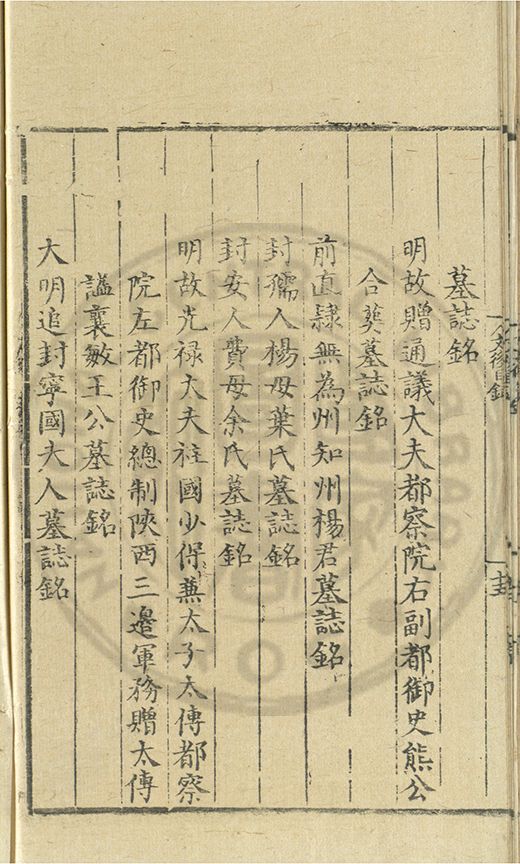 墓誌銘
明故贈通議大夫都察院右副都御史熊公
合葬墓誌銘
前直隸無為州知州楊君墓誌銘
封孺人楊母葉氏墓誌銘
封安人費母余氏墓誌銘
明故光祿大夫柱國少保兼太子太傅都察
院左都御史總制陝西三邊軍務贈太傅
謚襄敏王公墓誌銘
大明追封寧國夫人墓誌銘